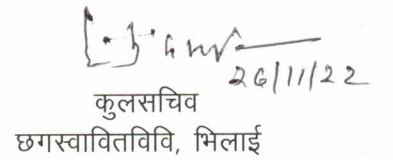 26/11/22
कुलसचिव
छगस्वावितविवि, भिलाई